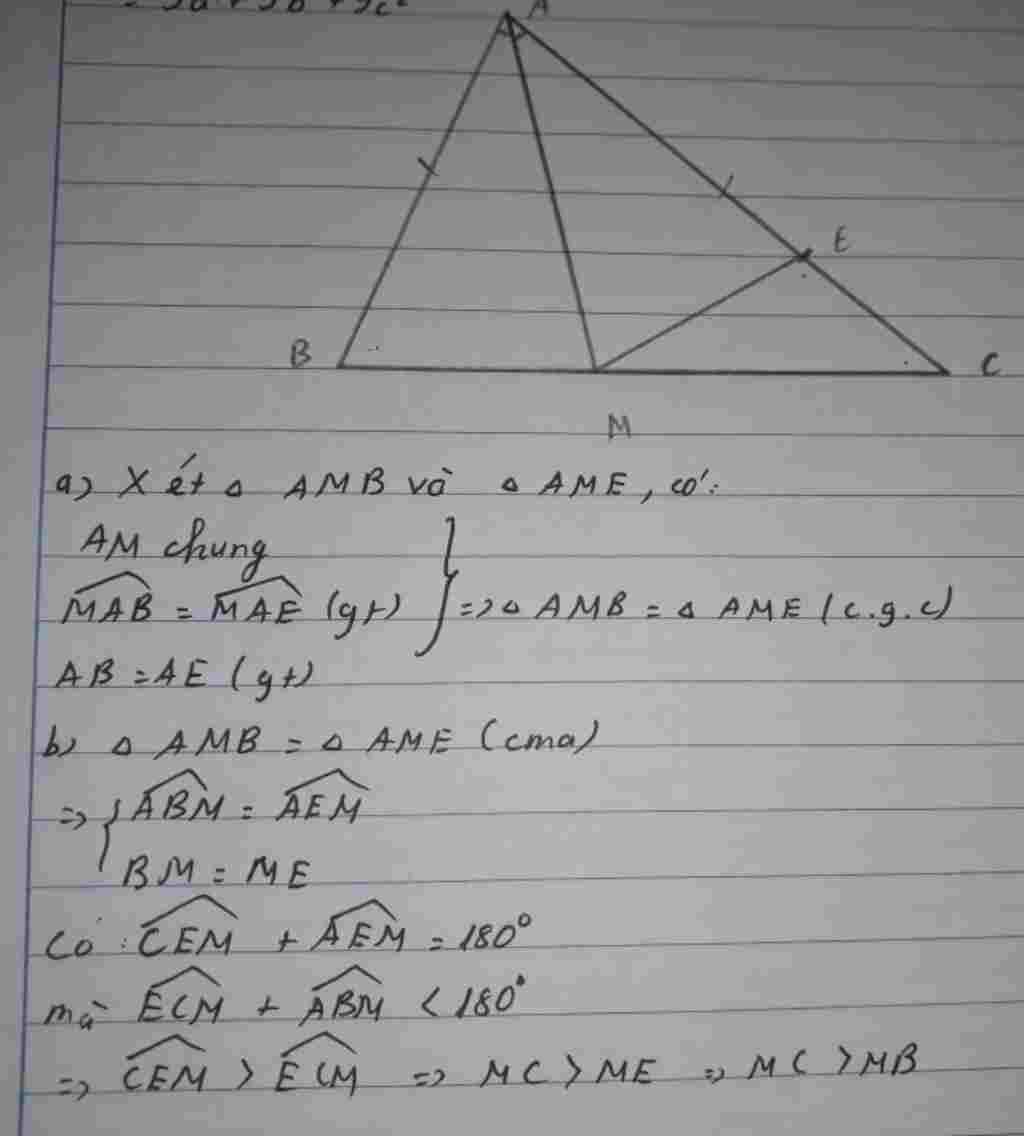 = 5a + 5b + 9c²
A
E
B
C
M
a) Xét △ AMB và △ AME, có:
AM chung
$\widehat{MAB}$ = $\widehat{MAE}$ (gt) } => △ AMB = △ AME (c.g.c)
AB = AE (gt)
b) △ AMB = △ AME (cma)
=> { $\widehat{ABM}$ = $\widehat{AEM}$
BM = ME
Có : $\widehat{CEM}$ + $\widehat{AEM}$ = 180°
mà $\widehat{ECM}$ + $\widehat{ABM}$ < 180°
=> $\widehat{CEM}$ > $\widehat{ECM}$ => MC > ME => MC > MB